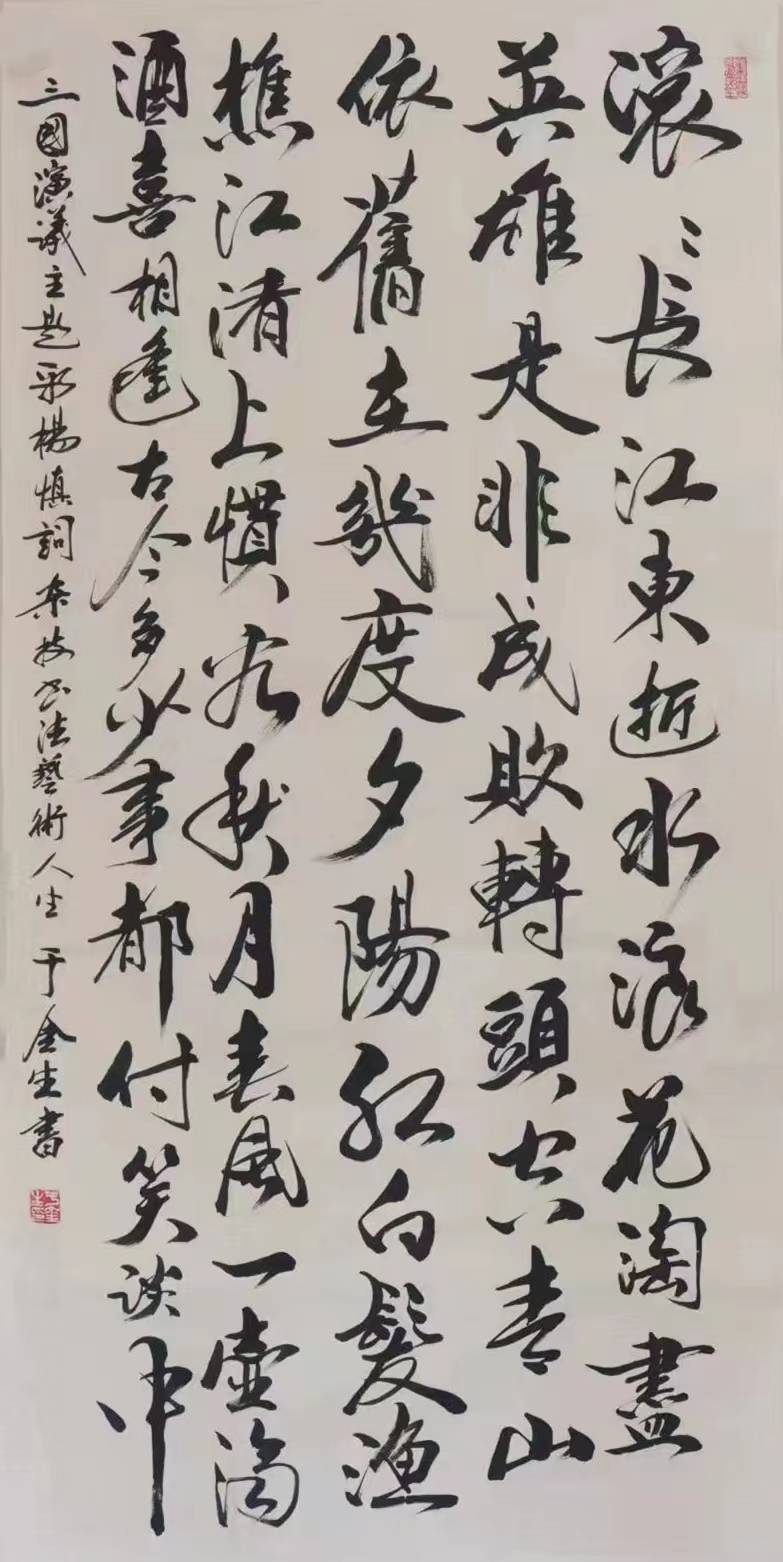 滚〻長江東逝水浪花淘盡
英雄是非成敗轉頭空青山
依舊在幾度夕陽紅白髮漁
樵江渚上慣看秋月春風一壺濁
酒喜相逢古今多少事都付笑談中
三國演議主題歌楊慎詞杂技书法藝術人生于金生書